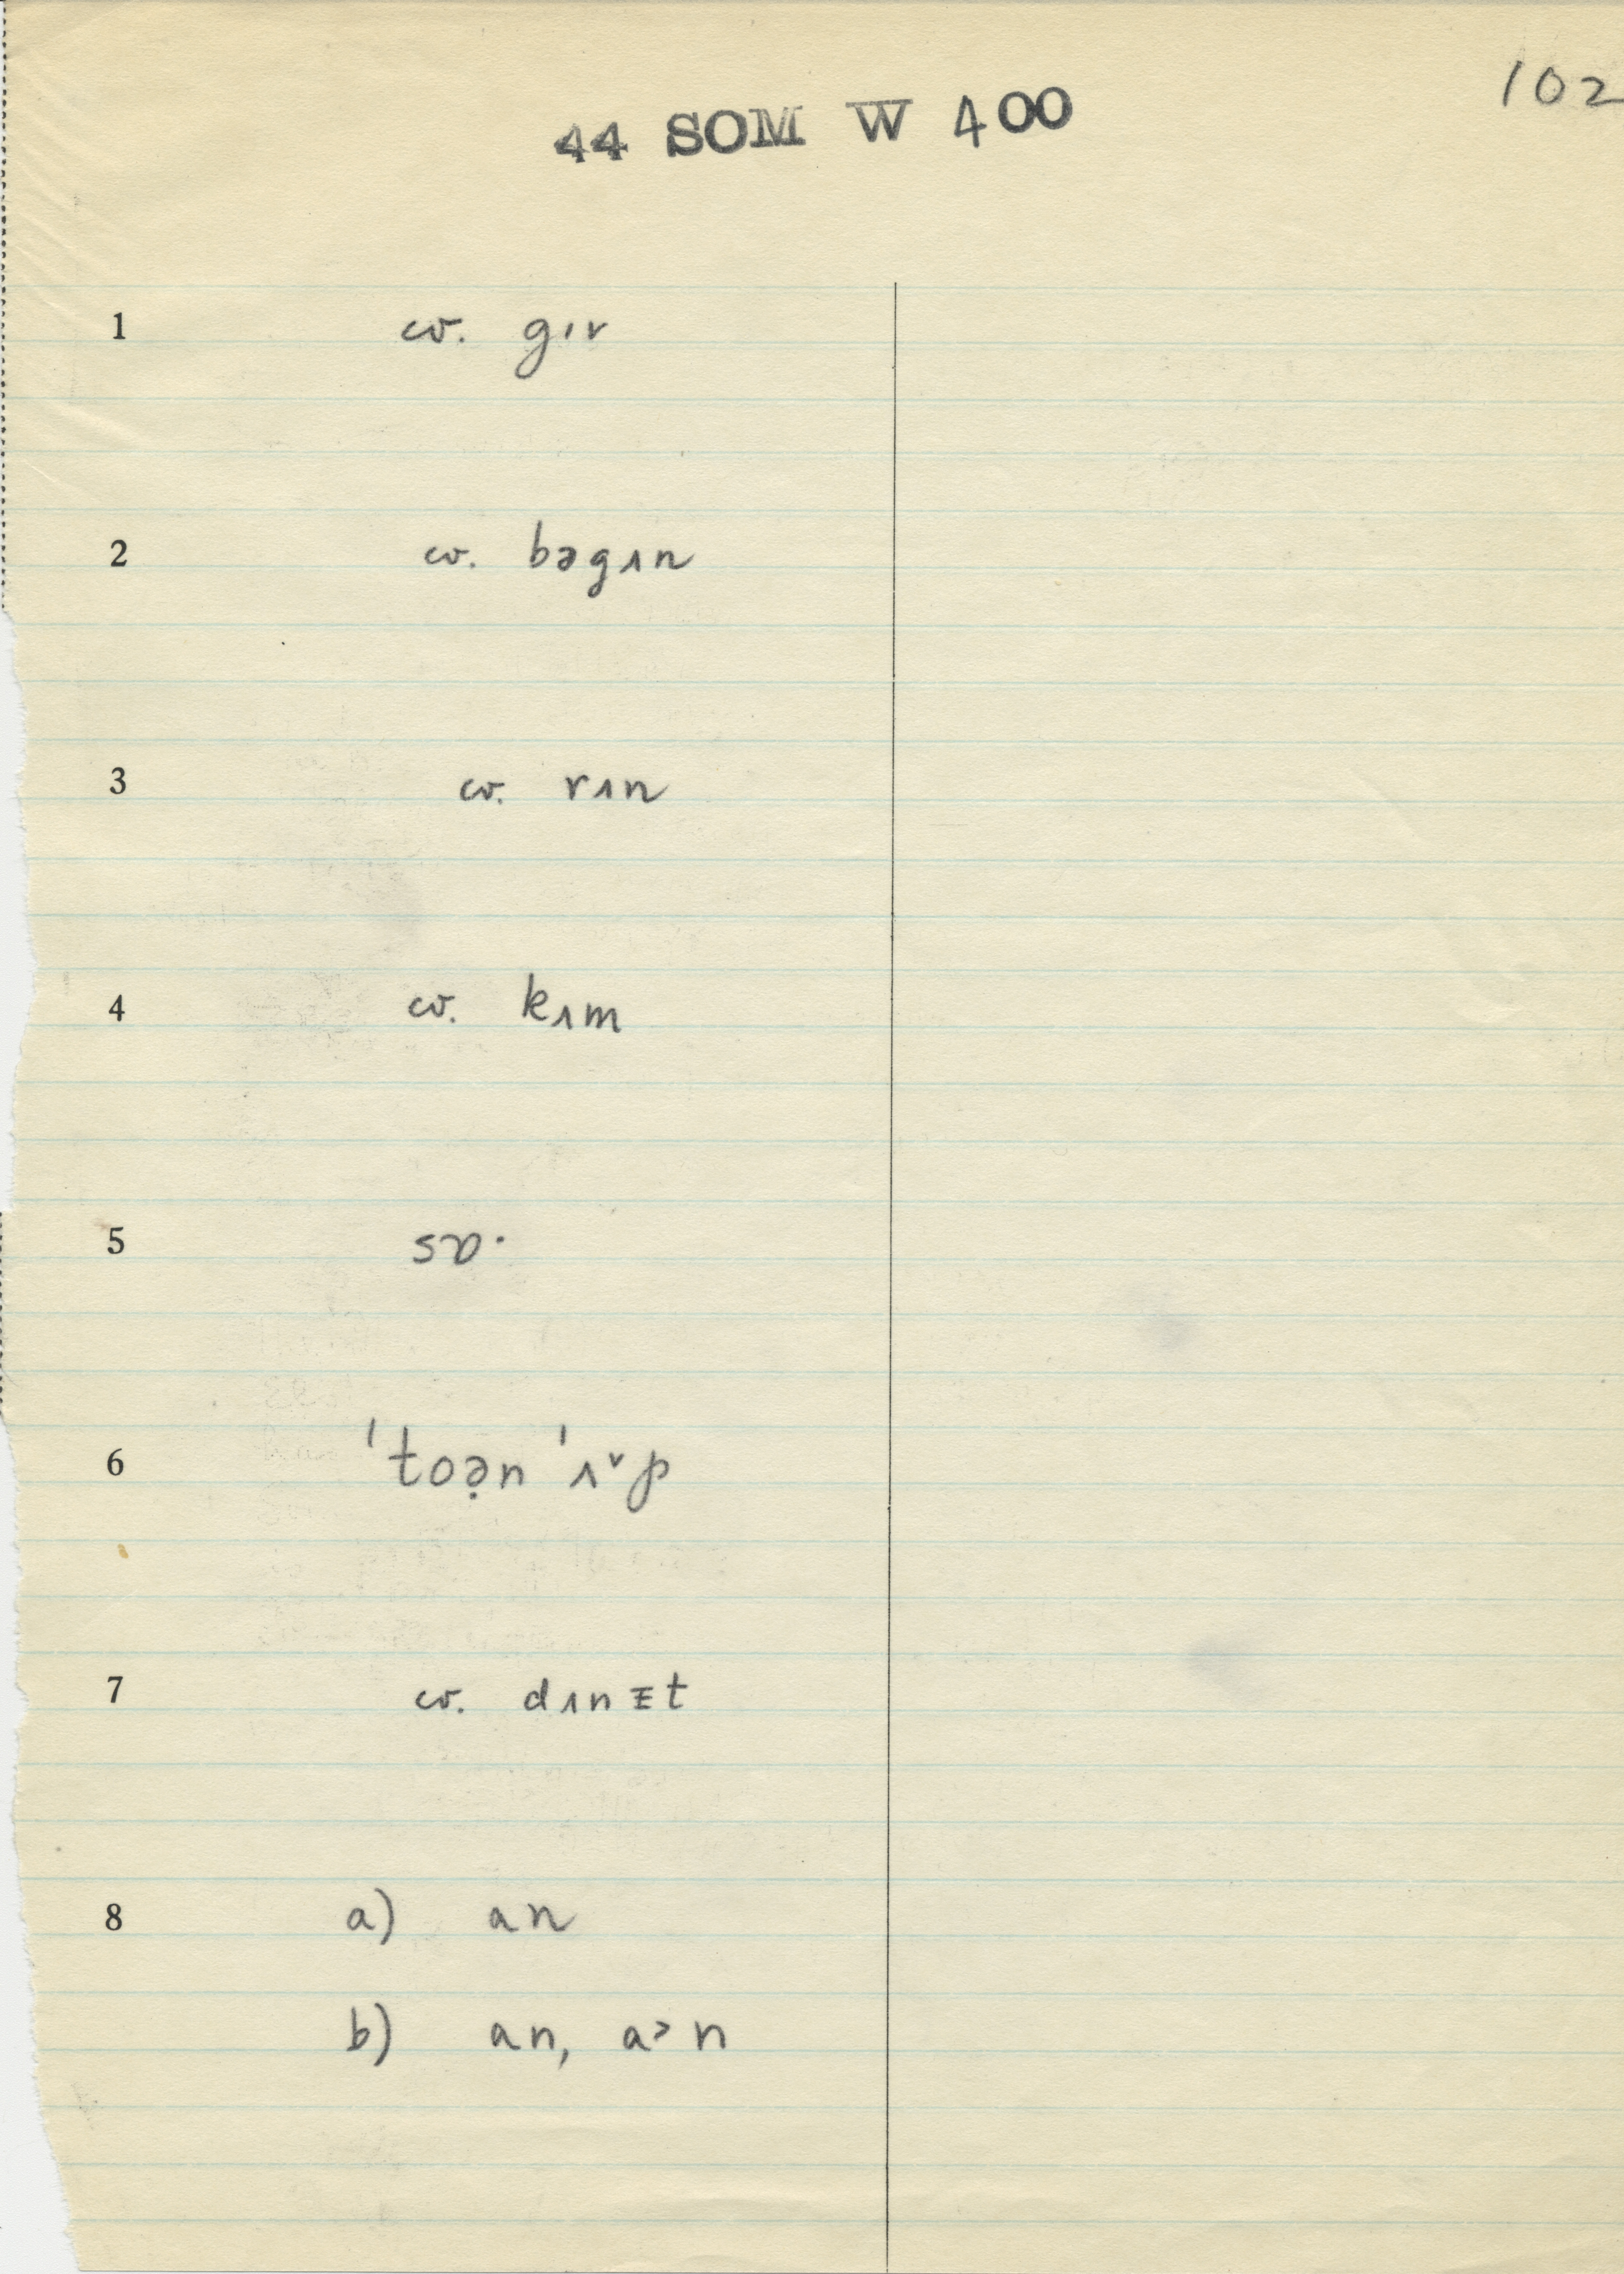 102
44 SOM W 400
1 cv. gɪv
2 cv. bəgɪn
3 cv. rɪn
4 cv. kɪm
5 sɒ·
6 ˈtoə̣n ˈɪ˅p
7 cv. dɪnᵻt
8 a) an
b) an, a˃n